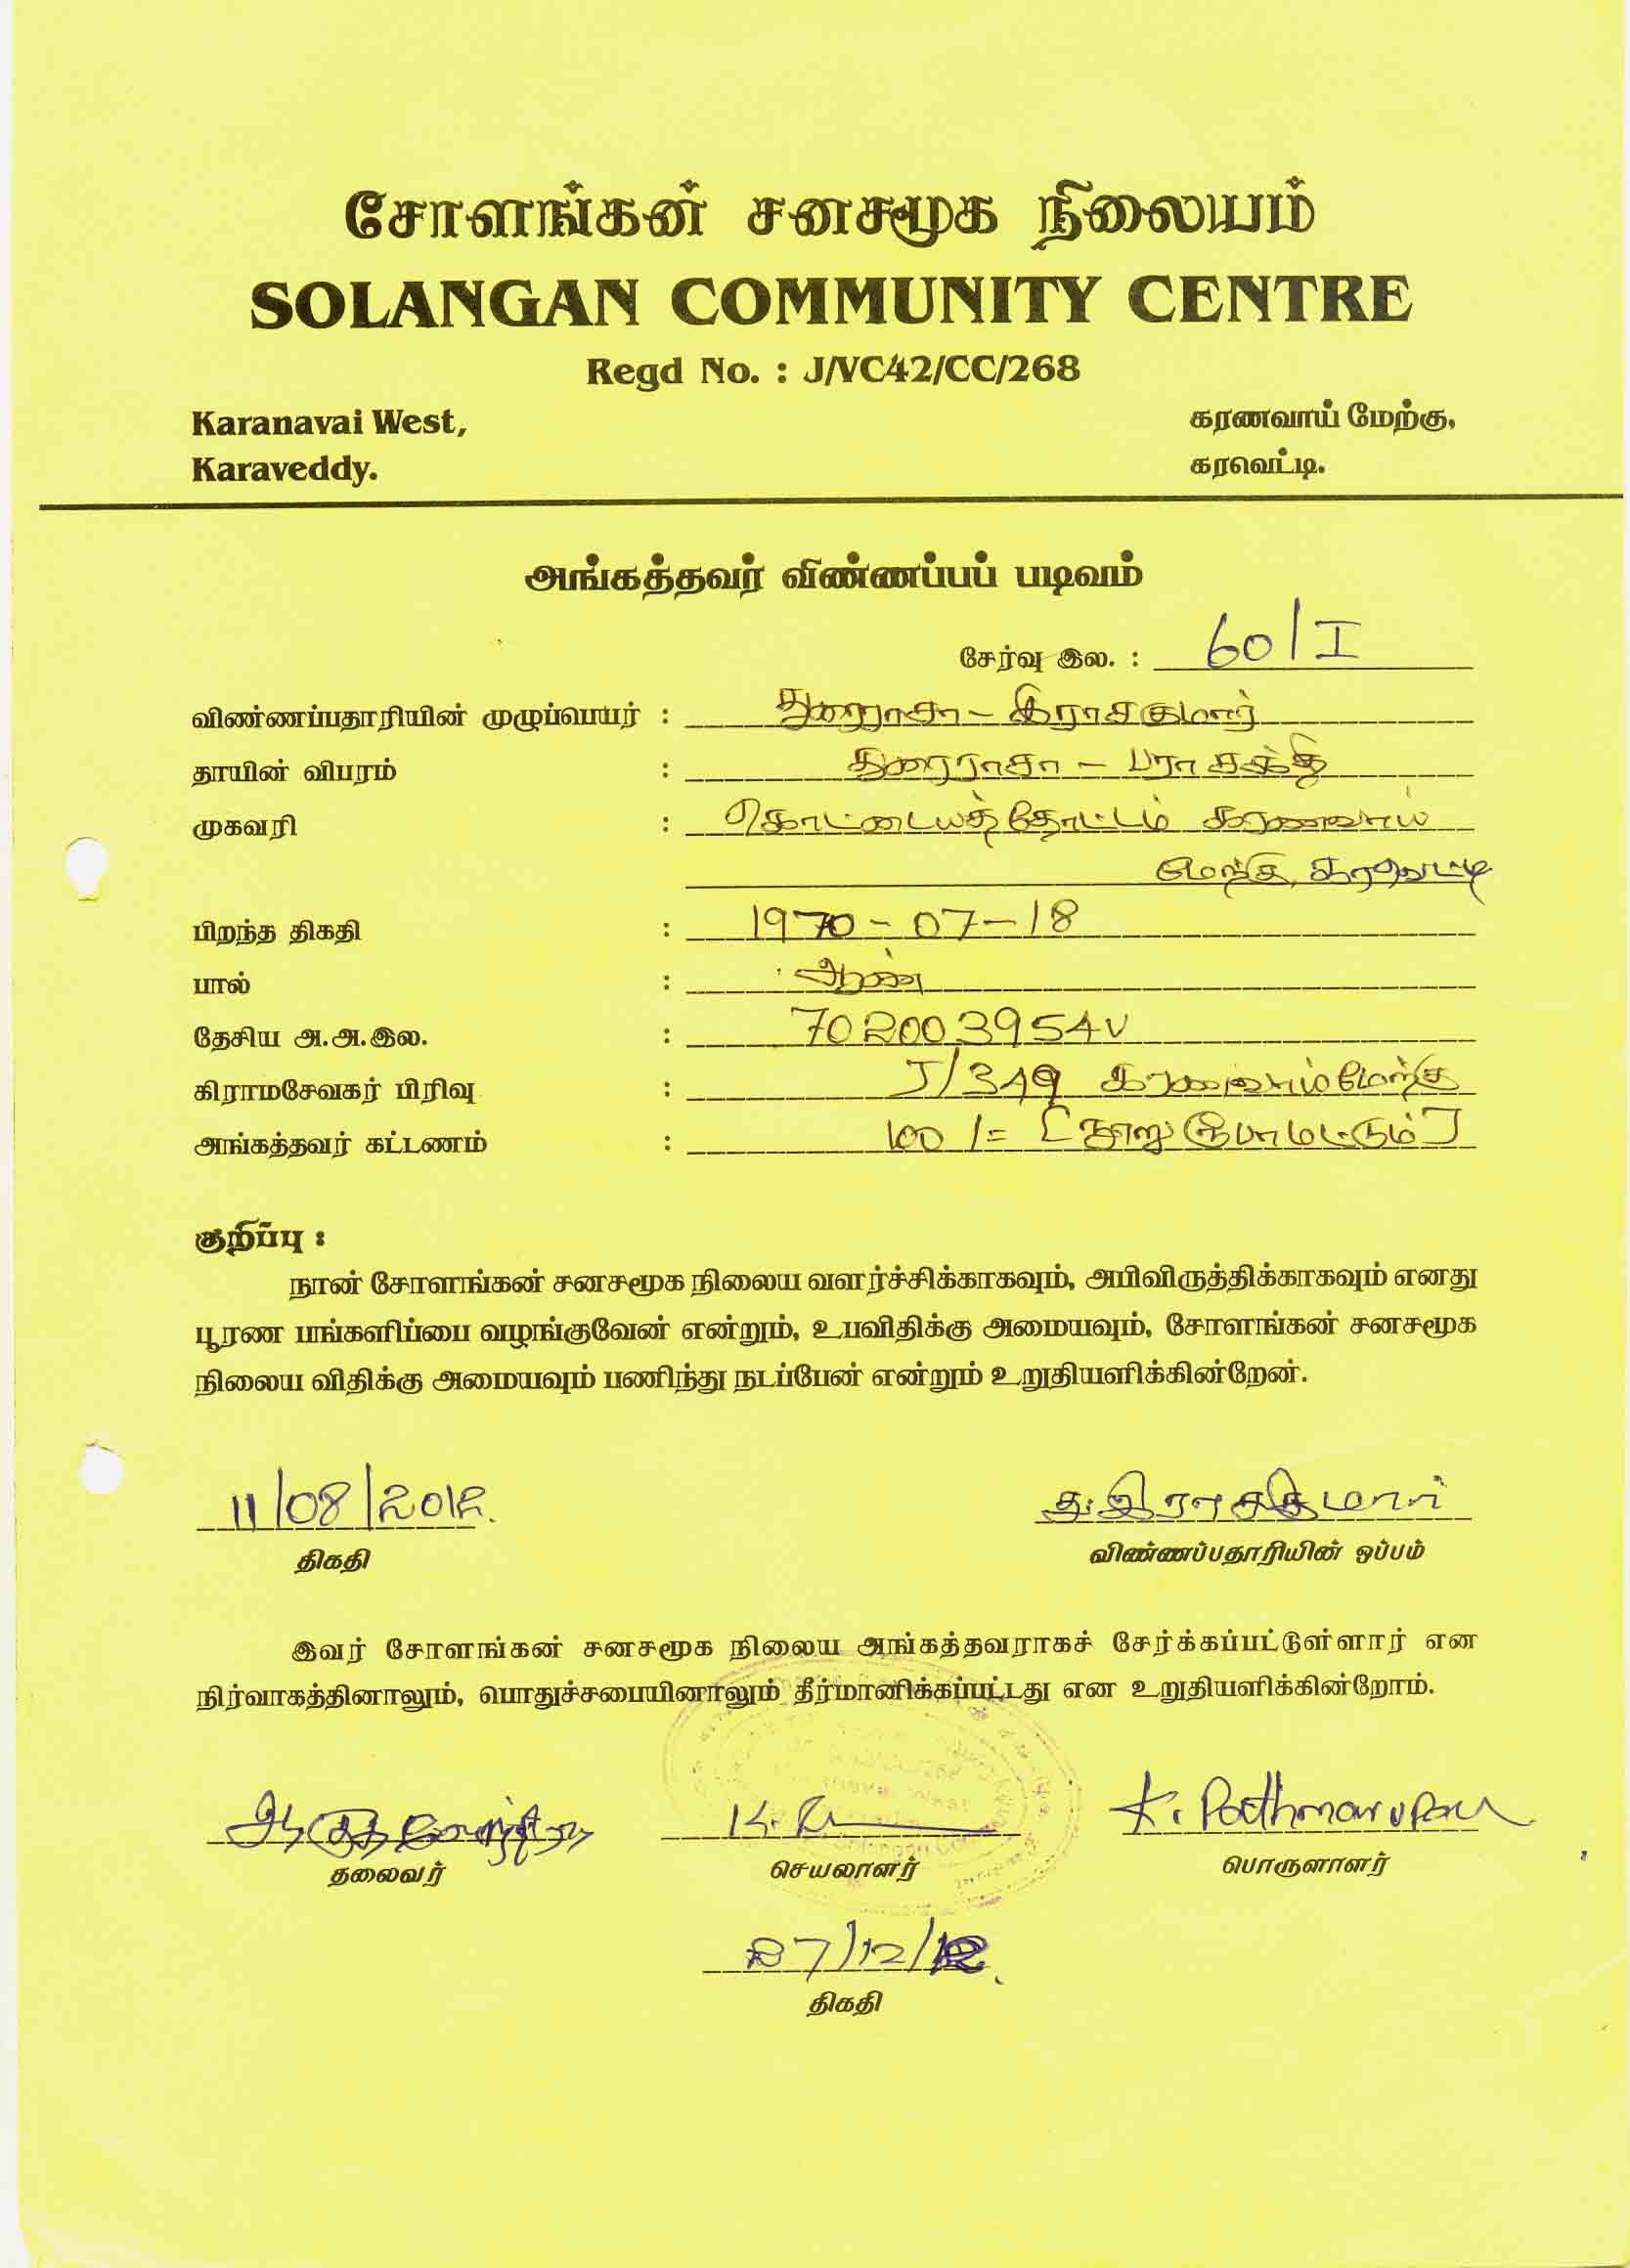 சோளங்கன் சனசமூக நிலையம்
SOLANGAN COMMUNITY CENTRE
Regd No. : J/VC42/CC/268
Karanavai West, கரணவாய் மேற்கு,
Karaveddy. கரவெட்டி.
அங்கத்தவர் விண்ணப்பப் படிவம்
சேர்வு இல. : 60/I
விண்ணப்பதாரியின் முழுப்பெயர் : துரைராசா - இராசகுமார்
தாயின் விபரம் : துரைராசா - பராசக்தி
முகவரி : கொட்டையத்தோட்டம் கரணவாய்
மேற்கு, கரவெட்டி
பிறந்த திகதி : 1970-07-18
பால் : ஆண்
தேசிய அ.அ.இல. : 702003954V
கிராமசேவகர் பிரிவு : J/349 கரணவாய் மேற்கு
அங்கத்தவர் கட்டணம் : 100/= [நூறு ரூபா மட்டும்]
குறிப்பு :
நான் சோளங்கன் சனசமூக நிலைய வளர்ச்சிக்காகவும், அபிவிருத்திக்காகவும் எனது
பூரண பங்களிப்பை வழங்குவேன் என்றும், உபவிதிக்கு அமையவும், சோளங்கன் சனசமூக
நிலைய விதிக்கு அமையவும் பணிந்து நடப்பேன் என்றும் உறுதியளிக்கின்றேன்.
11/08/2012. து.இராசகுமார்
திகதி விண்ணப்பதாரியின் ஒப்பம்
இவர் சோளங்கன் சனசமூக நிலைய அங்கத்தவராகச் சேர்க்கப்பட்டுள்ளார் என
நிர்வாகத்தினாலும், பொதுச்சபையினாலும் தீர்மானிக்கப்பட்டது என உறுதியளிக்கின்றோம்.
K. Pathmarupan
தலைவர் செயலாளர் பொருளாளர்
27/12/12.
திகதி